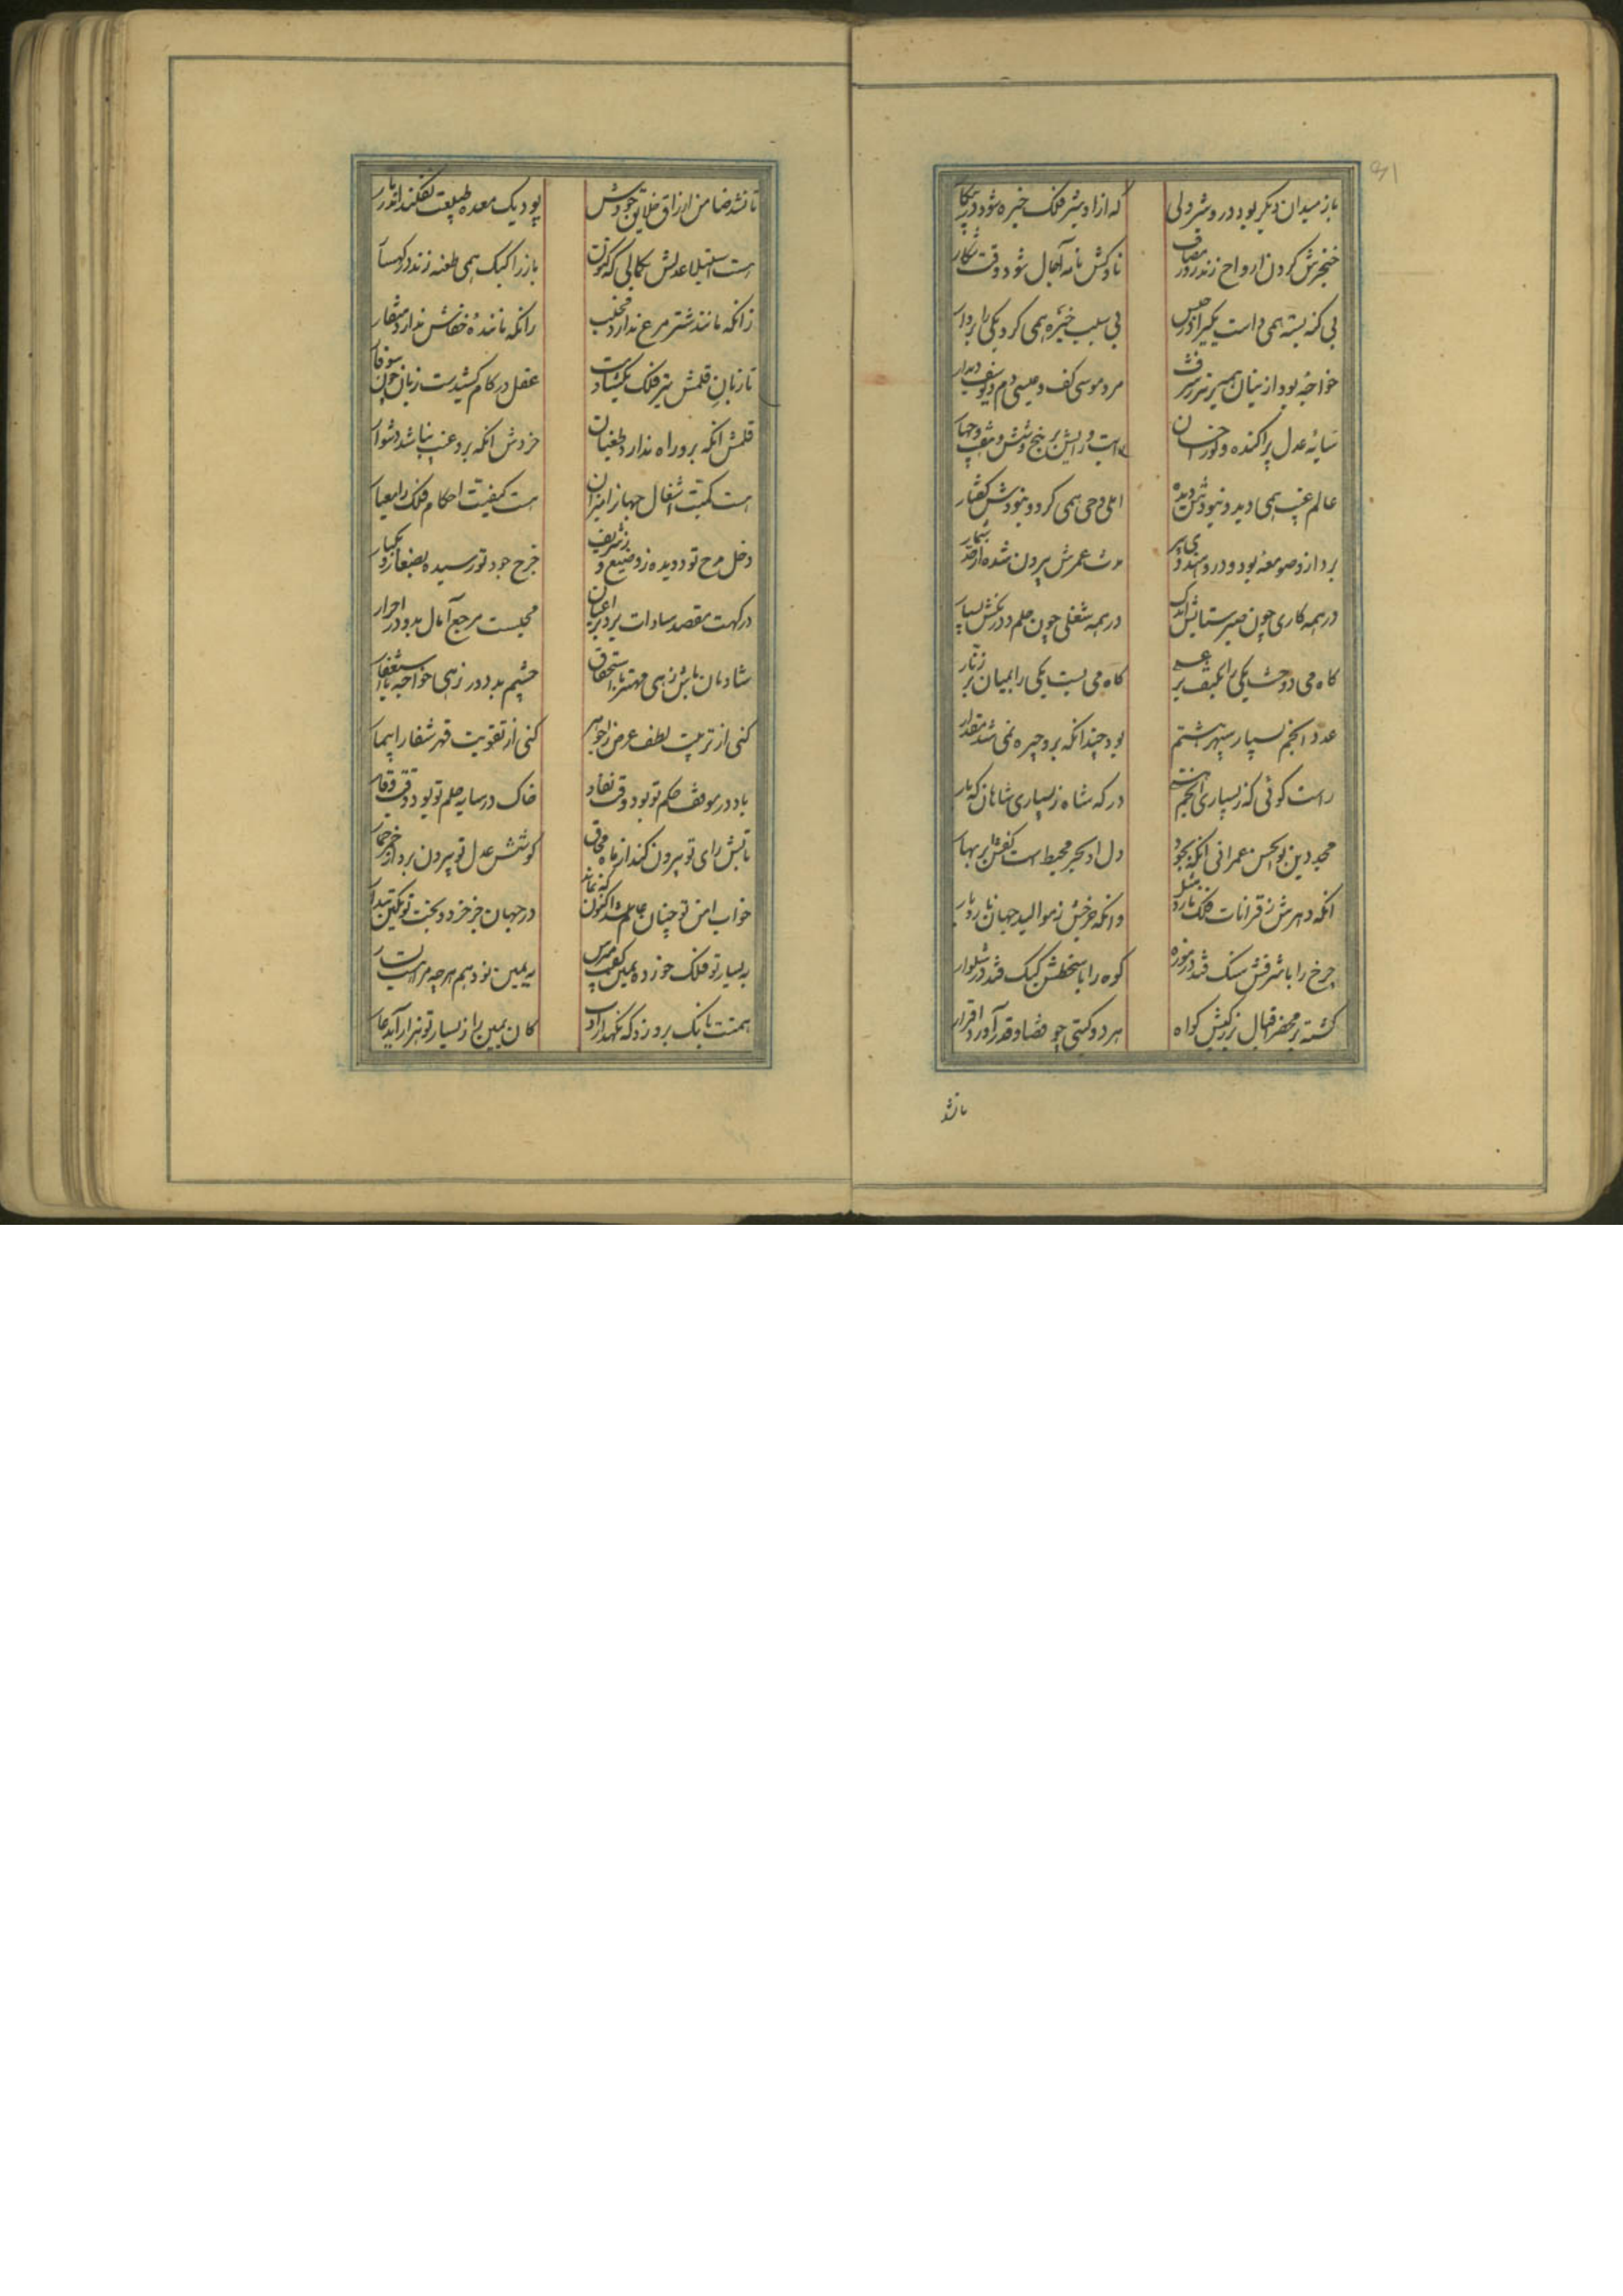 باز میدان دیگر بود درو شیر ولی
که ازاو شیر فلک خیره شود در پیکار
خنجرش گردن ارواح زند روز مصاف
ناوکش نامه آجال شود وقت شکار
بی گنه بسته همی داشت یکی را در حبس
بی سبب خیره همی کرد یکی را بردار
خواجه بود از ینان همیر برتر سر
مرد موسی کف و عیسی دم و یوسف دیدار
سایه عدل پراکنده و نور احسان
است و رایش بر پنج و شش و هفت و چهار
عالم غیب همی دید و نبودش دیده
املی وحی همی کرد و نبودش گفتار
بر از و صومعه بود و درو هندو پیر
مدت عمرش بیرون شده از حد شمار
در همه کاری چون صبر ستایش اندک
در همه شغلی چون حلم درنگش بسیار
گاه می دوخت یکی را بکتف بر
گاه می بست یکی را بمیان بر زنار
عدد انجم بسیار سپهر هشتم
بود چندانکه برو چیره نمی شد مقدار
راست گوئی که ز بسیاری انجم هستی
درگه شاه ز بسیاری شاهان گه بار
مجد دین بوالحسن عمرانی آنکه بجود
دل او بحر محیط است و کفش ابر بهار
آنکه دهرش ز قرانات فلک نارد مثل
وانکه چرخش ز موالید جهان نارد یار
چرخ را باشرفش سنگ فتد در موزه
کوه را با سخطش کیک فتد در شلوار
گشته بر محضر اقبال بزرگیش گواه
هر دو گیتی چو قضا و قدر آورد اقرار
تانشد
تا نشد ضامن ارزاق خلایق جودش
بود یک معده طبیعت نفکند اندر بار
هست استیلاء عدلش بکمالی که کنون
باز را کبک همی طعنه زند در کهسار
زانکه مانند شتر مرغ ندارد مخلب
زانکه ماننده خفاش ندارد منقار
تا زبان قلمش تیر فلک بگشادست
عقل در کام کشیدست زبان چون سوفار
قلمش آنکه برو راه ندارد طغیان
خردش آنکه برو غیب نباشد دشوار
هست کمیت اشغال جهانرا میزان
هست کیفیت احکام فلک را معیار
دخل مدح تو دویده ز وضیع و ز شریف
خرج جود تو رسیده بصغار و بکبار
درگهت مقصد سادات بزرگ اعیان
مجلست مرجع آمال بدو در احرار
شادمان باش زهی مهتر با استحقاق
چشم بد دور زهی خواجه با استظهار
کنی از تربیت لطف عرض را جوهر
کنی از تقویت قهر شفا را بیمار
باد در موقف حکم تو بود وقت نفاذ
خاک در سایه حلم تو بود وقت وقار
تابش رای تو بیرون کند از ماه محاق
کوشش عدل تو بیرون برد از خمر خمار
خواب امن تو چنان عام شد اکنون که نماند
در جهان جز خرد و بخت تو یک تن بیدار
به یسار تو فلک خورده یمین گفت مپرس
به یمین تو دهم هرچه مراهست یسار
همتت بانگ برو زد که نگهدار ادب
کان یمین را ز یسار تو هزار آید عار